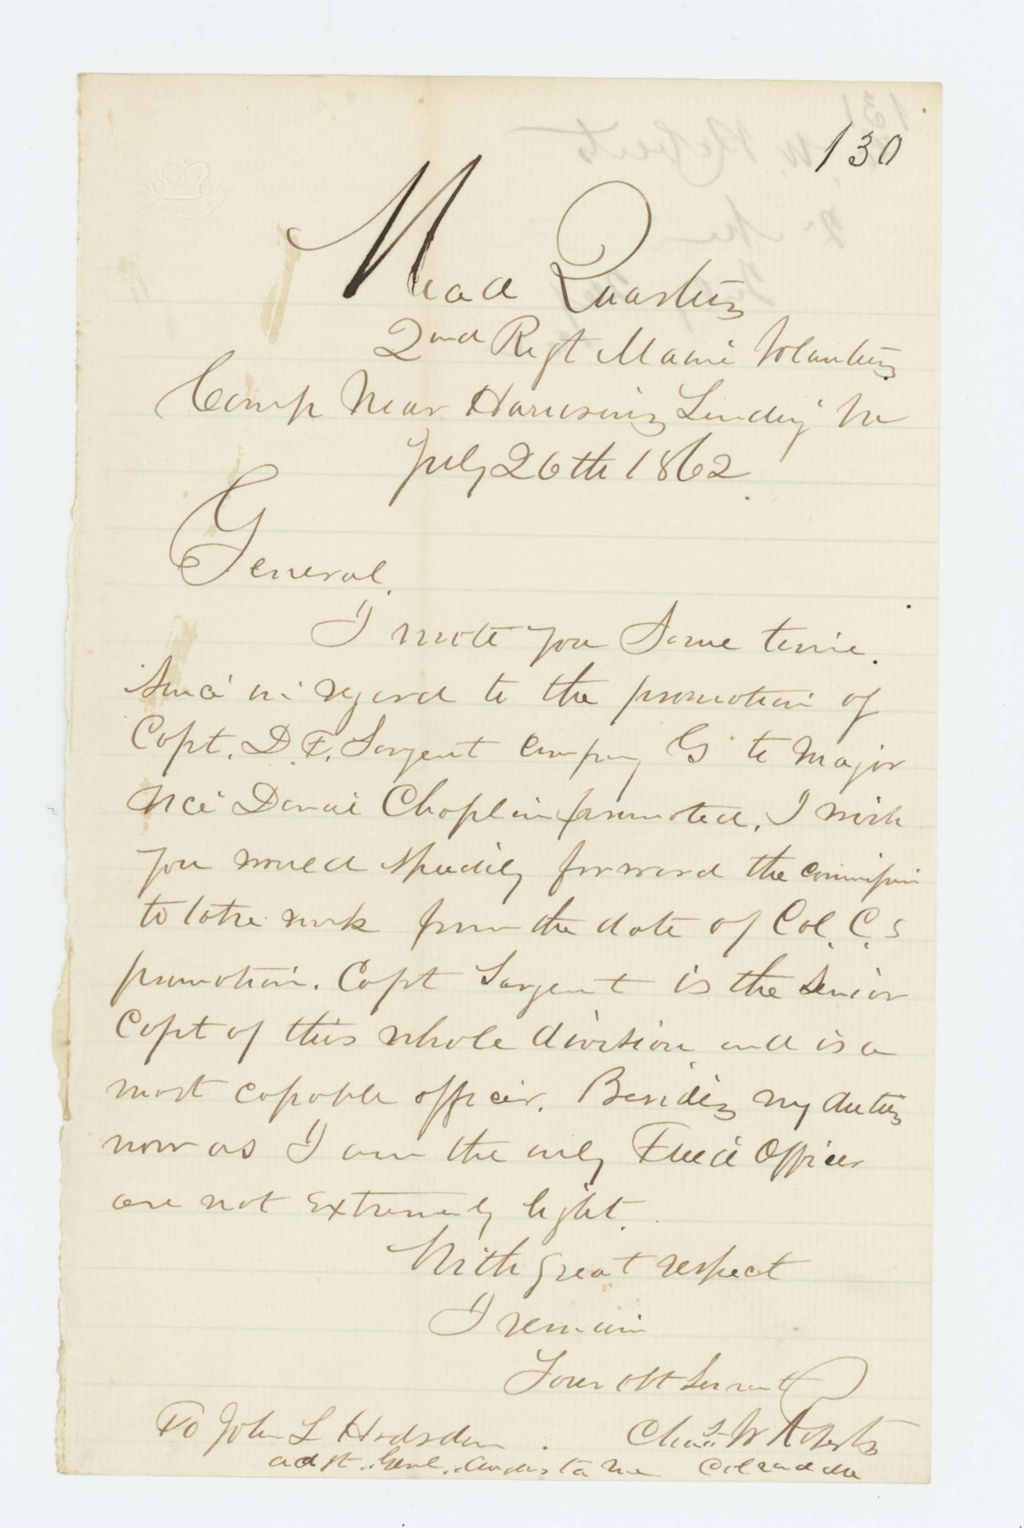 130
Head Quarters
2nd Regt Maine Volunteers
Camp Near Harrisons Landing Va
July 26th 1862
General.
I wrote you Some time.
Since in regard to the promotion of
Capt. D. F. Sargent Company G to Major
vice Daniel Chaplin promoted. I wish
you would speedily forward the commission
to take rank from the date of Col. C.s
promotion. Capt Sargent is the Senior
Capt of this whole division and is a
most capable officer. Besides my duties
now as I am the only Field Officer
are not extremely light.
With great respect
I remain
Your obt Servant
To John L Hodsdon. Chas W Roberts
adjt. Genl. Augusta Me Col 2nd Me